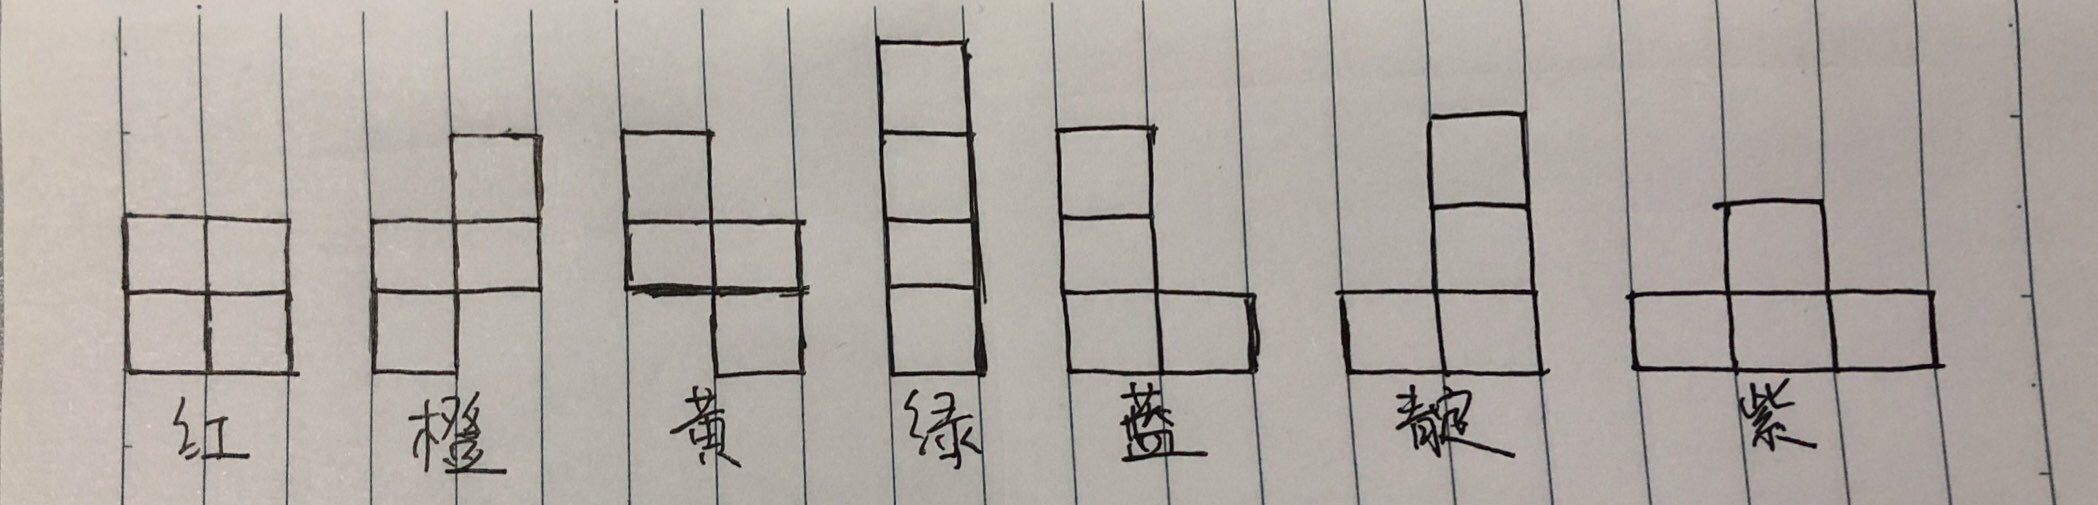 红 橙 黄 绿 蓝 靛 紫